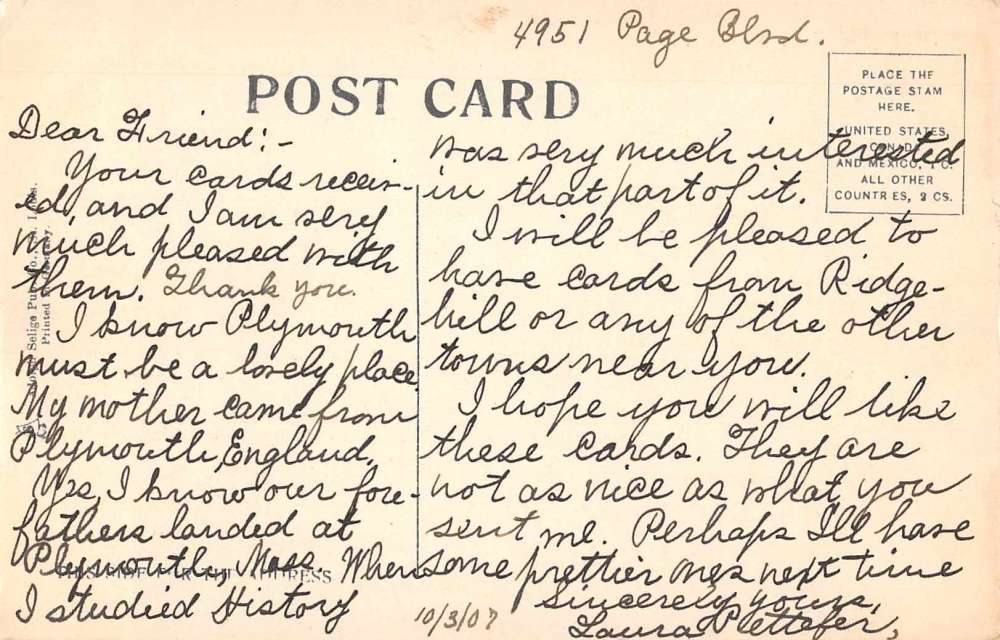 4951 Page Blvd.
POST CARD
PLACE THE
POSTAGE STAM
HERE.
UNITED STATES,
CANADA
AND MEXICO, 1 C.
ALL OTHER
COUNTRES, 2 CS.
Dear Friend:-
Your cards receiv-
ed, and I am very
much pleased with
them. Thank you.
I know Plymouth
must be a lovely place
My mother came from
Plymouth, England.
Yes, I know our fore-
fathers landed at
Plymouth, Mass. When
I studied History
was very much interested
in that part of it.
I will be pleased to
have cards from Ridge-
hill or any of the other
towns near you.
I hope you will like
these cards. They are
not as nice as what you
sent me. Perhaps I'll have
some prettier ones next time
Sincerely yours,
Laura
10/3/07
THIS SIDE FOR THE ADDRESS
Selige Pub. Co.,
Printed